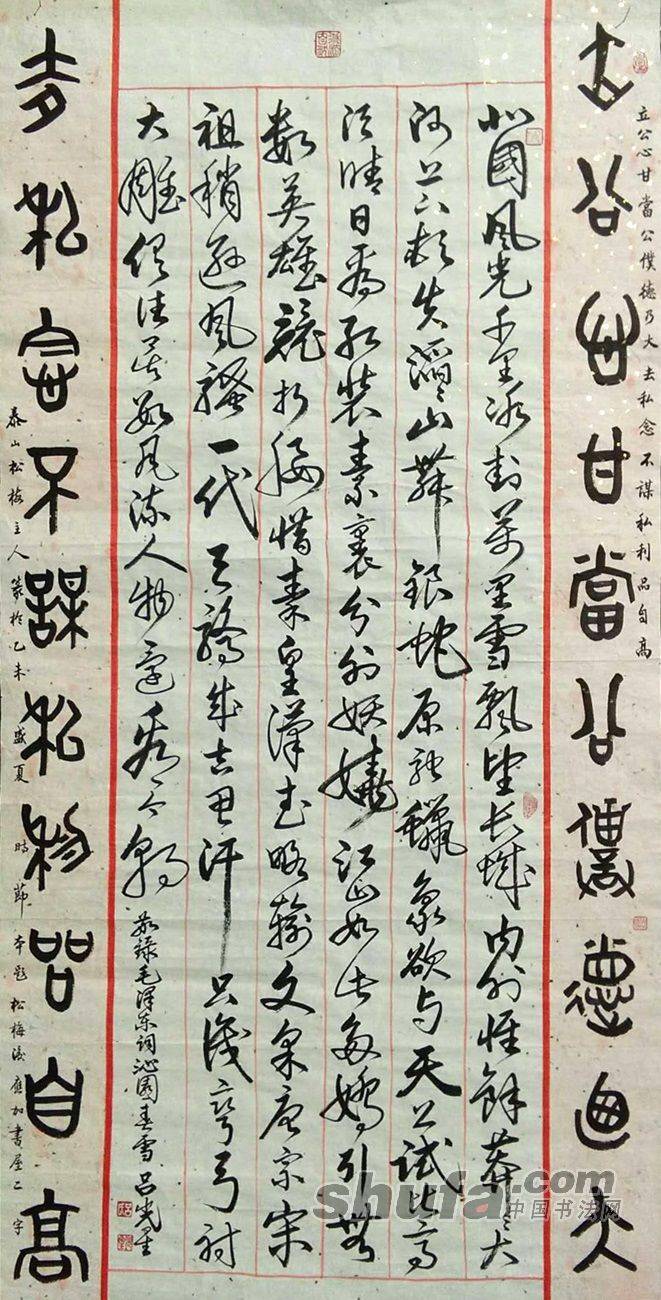 立公心甘當公僕德乃大去私念不謀私利品自高
立公心甘當公僕德迺大
北國風光千里冰封萬里雪飄望長城内外惟餘莽々大
河上下頓失滔々山舞銀蛇原馳蠟象欲与天公試比高
須晴日看红装素裹分外妖嬈江山如此多嬌引無
數英雄競折腰惜秦皇漢武略輸文采唐宗宋
祖稍遜風騷一代天驕成吉思汗只識彎弓射
大雕俱往矣數风流人物還看今朝
敬録毛澤东词沁園春雪
去私念不謀私利品自高
泰山松梅主人篆於乙未盛夏時節本題松梅後應加書屋二字
shufa.com
中国书法网